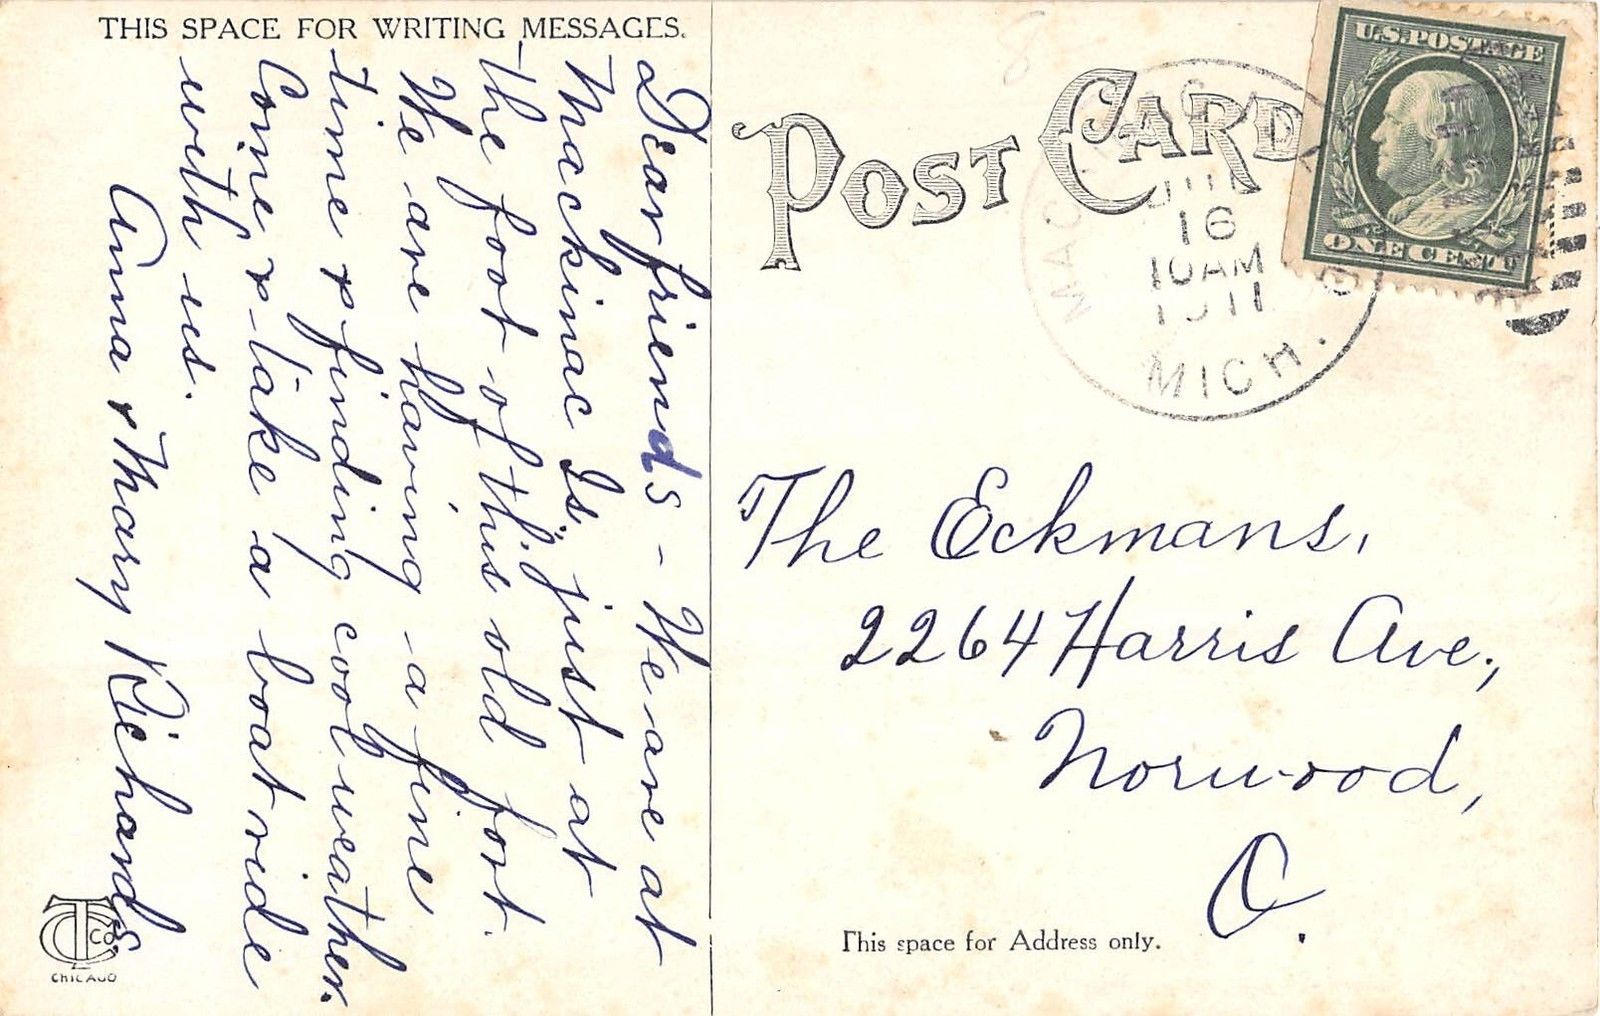 THIS SPACE FOR WRITING MESSAGES.
Dear friends - We are at
Mackinac Is. just at
the foot of this old fort.
We are having a fine
time & finding cool weather.
Come & take a boat ride
with us.
Anna & Mary Richards.
CTCo.
CHICAGO
POST CARD
MAC
16
10AM
1911
MICH.
U.S. POSTAGE
ONE CENT
The Eckmans,
2264 Harris Ave.,
Norwood,
O.
This space for Address only.